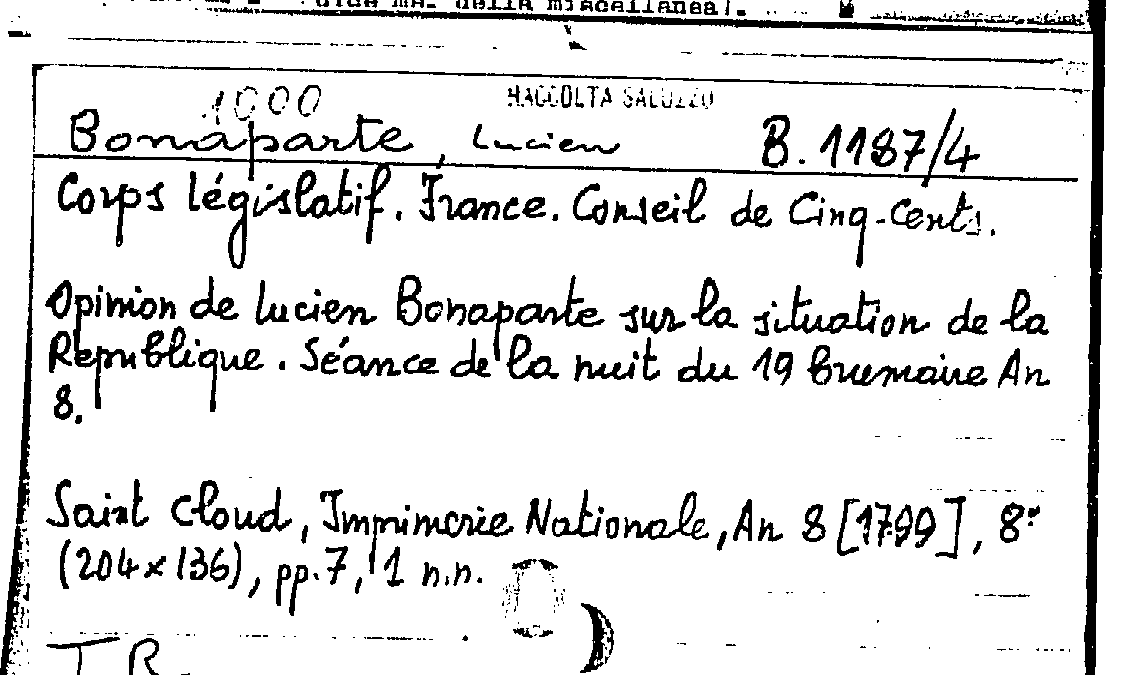 della miscellanea).
1000 RACCOLTA SALUZZO
Bonaparte, Lucien B. 1187/4
Corps législatif. France. Conseil de Cinq-Cents.
Opinion de Lucien Bonaparte sur la situation de la
Republique. Séance de la nuit du 19 brumaire An
8.
Saint Cloud, Imprimerie Nationale, An 8 [1799], 8°
(204x136), pp. 7, 1 n.n.
T R.